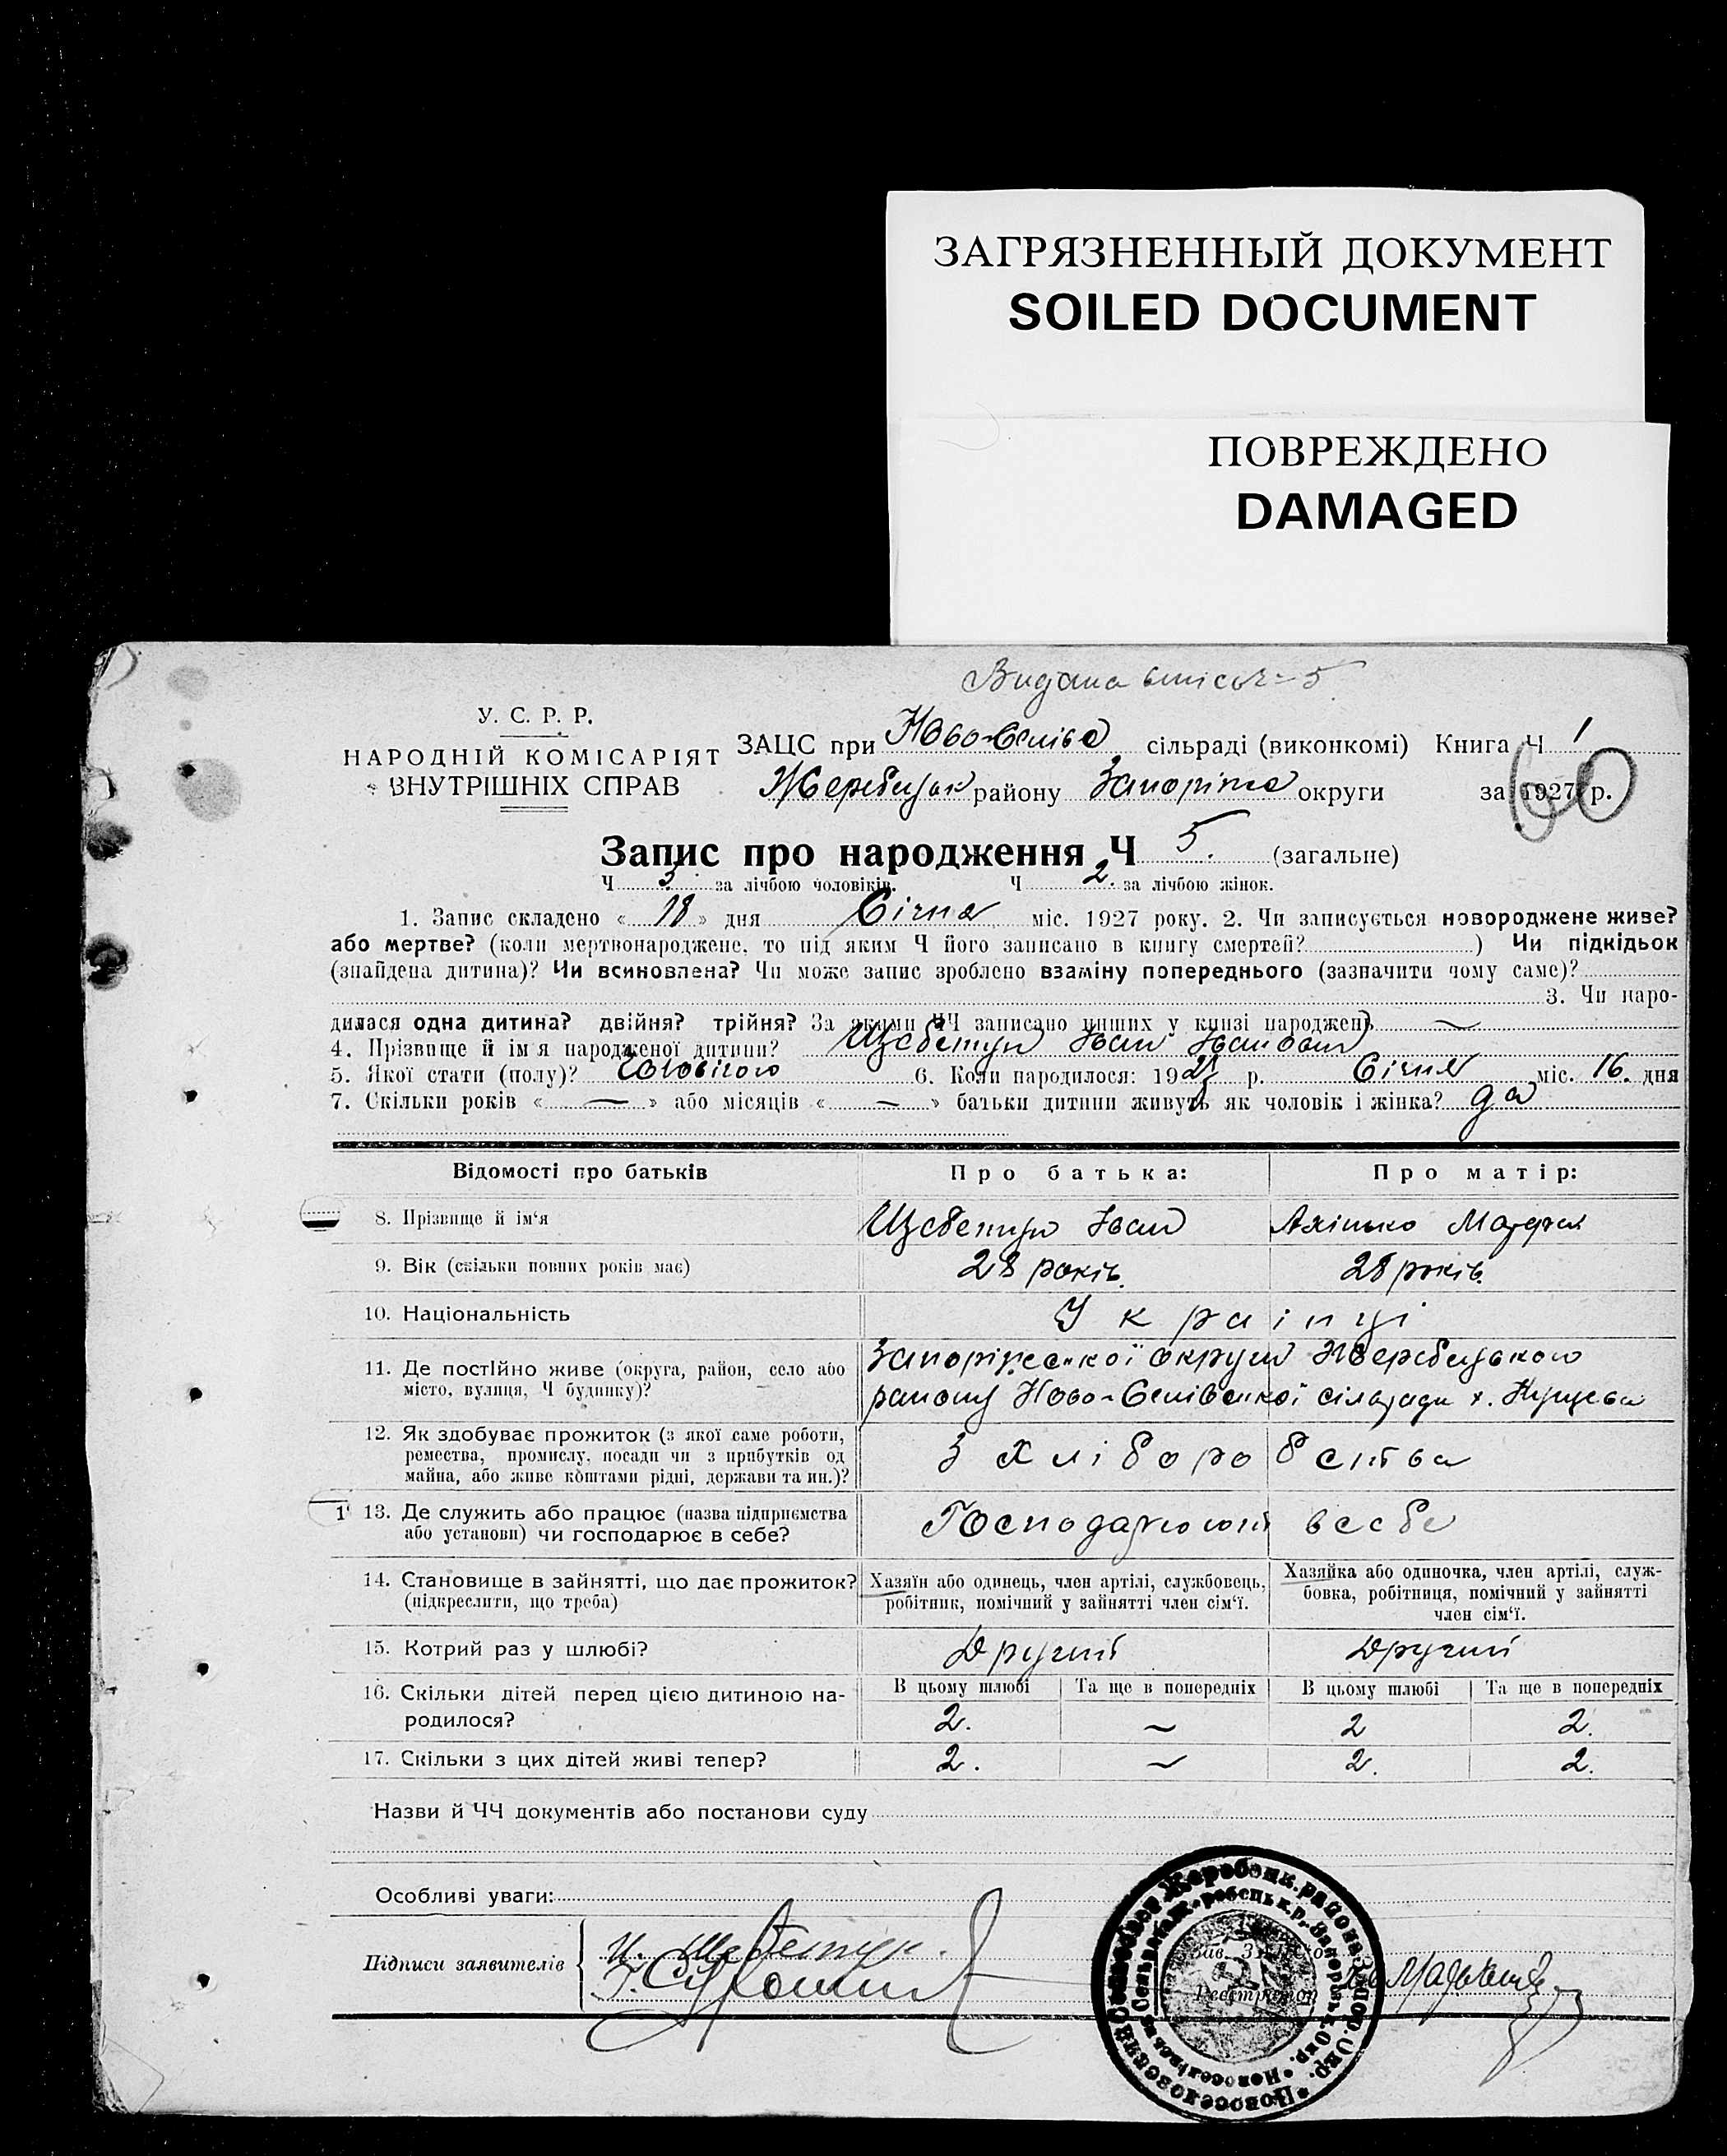 ЗАГРЯЗНЕННЫЙ ДОКУМЕНТ
SOILED DOCUMENT
ПОВРЕЖДЕНО
DAMAGED
Видана 5
У. С. Р. Р.
НАРОДНІЙ КОМІСАРІЯТ
ВНУТРІШНІХ СПРАВ
ЗАЦС при Ново-Селівс сільраді (виконкомі) Книга Ч 1
Жеребецьк району Запоріжс округи за 1927 р.
60
Запис про народження Ч 5. (загальне)
Ч 3 за лічбою чоловіків. Ч 2. за лічбою жінок.
1. Запис складено « 18 » дня Січня міс. 1927 року. 2. Чи записується новороджене живе?
або мертве? (коли мертвонароджене, то під яким Ч його записано в книгу смертей? ) Чи підкідьок
(знайдена дитина)? Чи всиновлена? Чи може запис зроблено взаміну попереднього (зазначити чому саме)?
3. Чи наро-
дилася одна дитина? двійня? трійня? За якими ЧЧ записано инших у книзі народжень —
4. Прізвище й ім'я народженої дитини? Щебетун Іван Іванович
5. Якої стати (полу)? Чоловічого 6. Коли народилося: 1927 р. Січня міс. 16. дня
7. Скільки років « — » або місяців « — » батьки дитини живуть як чоловік і жінка? да
Відомості про батьків Про батька: Про матір:
8. Прізвище й ім'я Щебетун Іван
9. Вік (скільки повних років має) 28 років. 28 років.
10. Національність Українці
11. Де постійно живе (округа, район, село або
місто, вулиця, Ч будинку)?
Запоріжської округи Жеребецького
району Ново-Селівської сільради х.
12. Як здобуває прожиток (з якої саме роботи,
ремества, промислу, посади чи з прибутків од
майна, або живе коштами рідні, держави та ин.)?
З хліборобства
13. Де служить або працює (назва підприємства
або установи) чи господарює в себе?
Господарюють в себе
14. Становище в зайнятті, що дає прожиток?
(підкреслити, що треба)
Хазяїн або одинець, член артілі, службовець,
робітник, помічний у зайнятті член сім'ї.
Хазяйка або одиночка, член артілі, служ-
бовка, робітниця, помічний у зайнятті
член сім'ї.
15. Котрий раз у шлюбі? Другий Другий
16. Скільки дітей перед цією дитиною на-
родилося?
В цьому шлюбі Та ще в попередніх В цьому шлюбі Та ще в попередніх
2. — 2 2.
17. Скільки з цих дітей живі тепер? 2. — 2. 2.
Назви й ЧЧ документів або постанови суду
Особливі уваги:
Підписи заявителів
И. Щебетун.
Зав. ЗАЦСо
Реєстратор